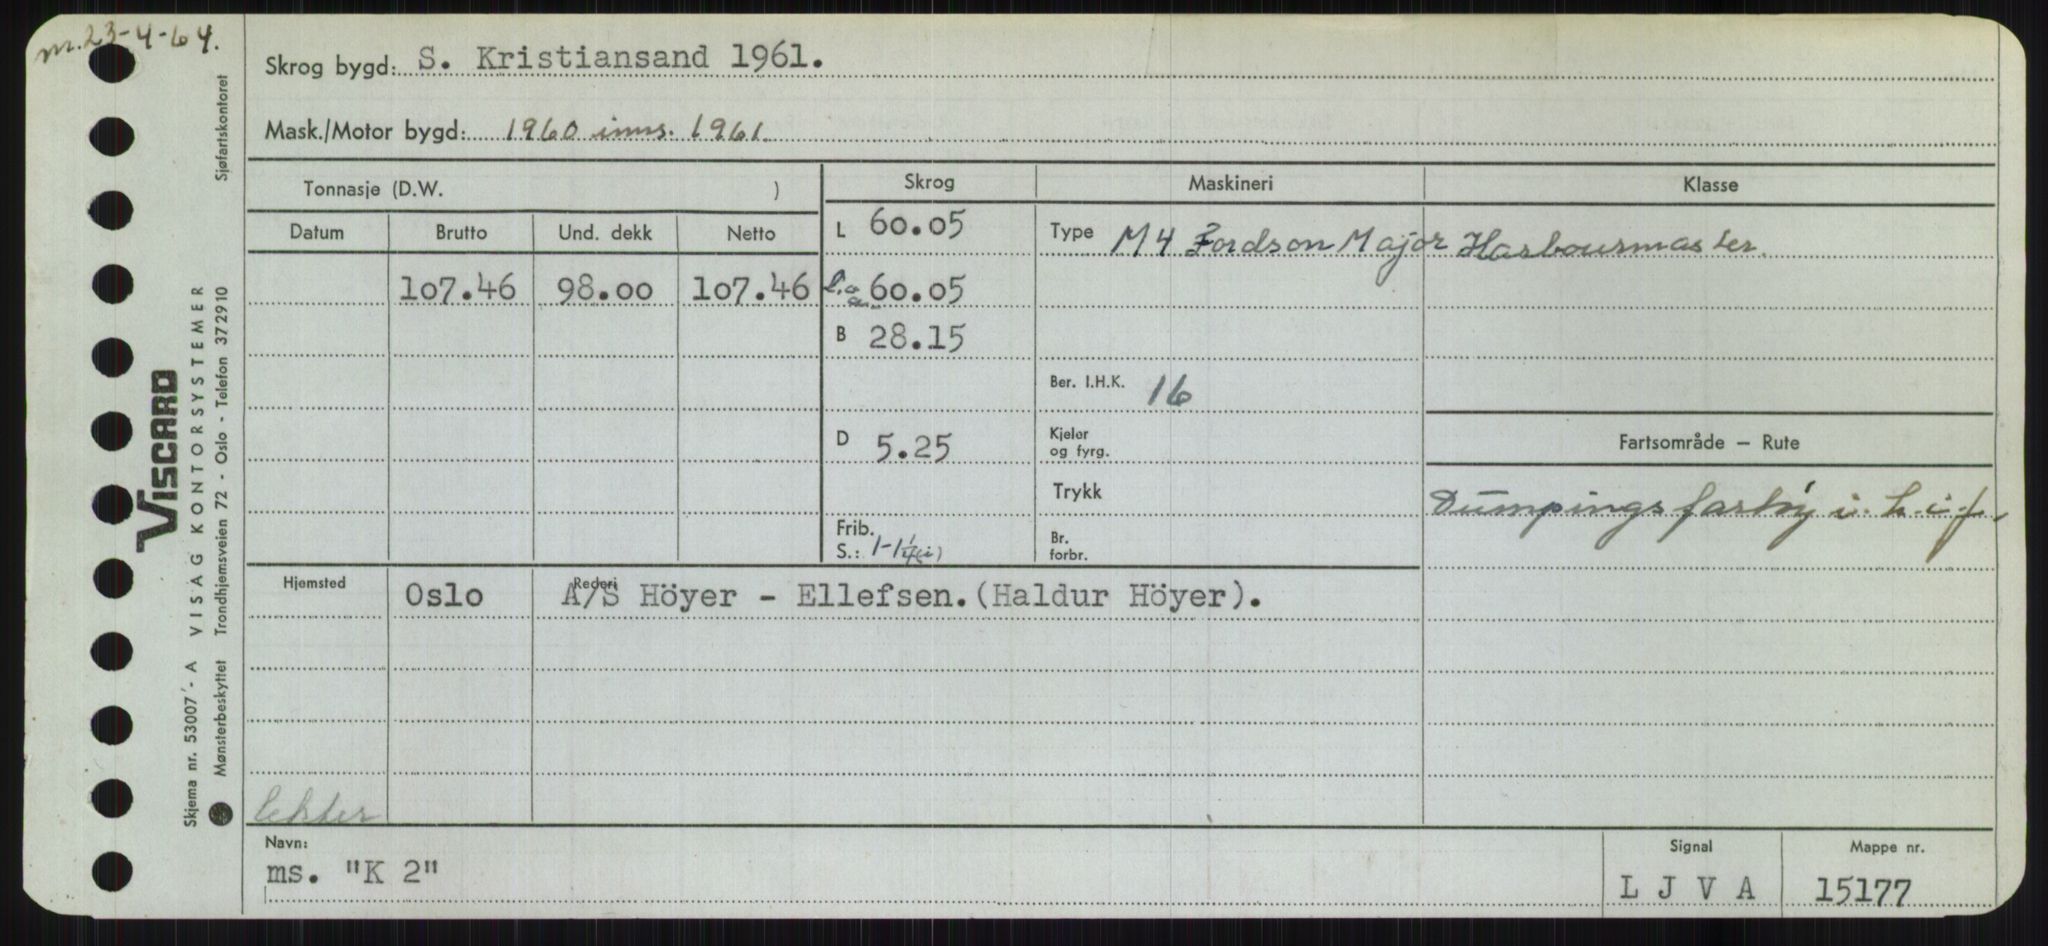 m. 23-4-64.
Skrog bygd: S. Kristiansand 1961.
Mask./Motor bygd: 1960 inns. 1961.
Tonnasje (D.W. )
Skrog Maskineri Klasse
Datum Brutto Und. dekk Netto
L 60.05
Type M4 Fordson Major Harbourmaster.
107.46 98.00 107.46 60.05
B 28.15
Ber. I.H.K. 16
D 5.25
Kjeler
og fyrg.
Fartsområde — Rute
Trykk
Dumpingsfartöy i. h. i f.
Frib.
S.: 1-1¼(i)
Br.
forbr.
Hjemsted Oslo Rederi A/S Höyer - Ellefsen. (Haldur Höyer).
lekter
Navn:
ms. "K 2"
Signal
L J V A
Mappe nr.
15177
Sjøfartskontoret
VISCARD
VISAG KONTORSYSTEMER
Trondhjemsveien 72 - Oslo - Telefon 372910
Skjema nr. 53007 - A
Mønsterbeskyttet